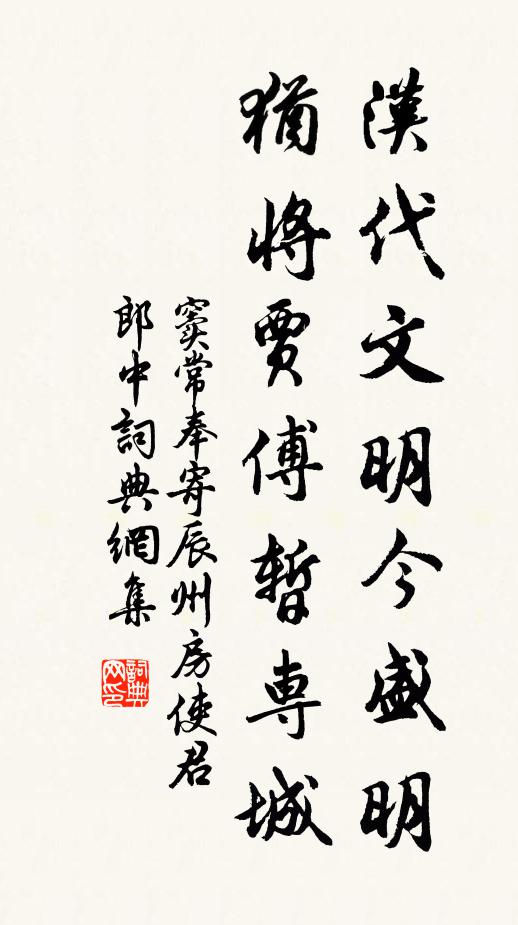 漢代文明今盛明
猶將賈傅暫專城
竇常奉寄辰州房使君
郎中詞典網集
詞典
网印